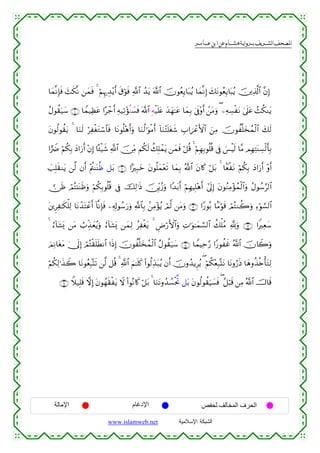 المصحف الشريف برواية هشام عن ابن عامر
إِنَّ الَّذِينَ يُبَايِعُونَكَ إِنَّمَا يُبَايِعُونَ اللَّهَ يَدُ اللَّهِ فَوْقَ أَيْدِيهِمْ فَمَن نَّكَثَ فَإِنَّمَا
يَنكُثُ عَلَىٰ نَفْسِهِ وَمَنْ أَوْفَىٰ بِمَا عَاهَدَ عَلَيْهِ اللَّهَ فَسَنُؤْتِيهِ أَجْرًا عَظِيمًا ١٠ سَيَقُولُ
لَكَ الْمُخَلَّفُونَ مِنَ الْأَعْرَابِ شَغَلَتْنَا أَمْوَالُنَا وَأَهْلُونَا فَاسْتَغْفِرْ لَنَا يَقُولُونَ
بِأَلْسِنَتِهِم مَّا لَيْسَ فِي قُلُوبِهِمْ قُلْ فَمَن يَمْلِكُ لَكُم مِّنَ اللَّهِ شَيْئًا إِنْ أَرَادَ بِكُمْ ضَرًّا
أَوْ أَرَادَ بِكُمْ نَفْعًا بَلْ كَانَ اللَّهُ بِمَا تَعْمَلُونَ خَبِيرًا ١١ بَل ظَّنَنتُمْ أَن لَّن يَنقَلِبَ
الرَّسُولُ وَالْمُؤْمِنُونَ إِلَىٰ أَهْلِيهِمْ أَبَدًا وَزُيِّنَ ذَٰلِكَ فِي قُلُوبِكُمْ وَظَنَنتُمْ ظَنَّ
السَّوْءِ وَكُنتُمْ قَوْمًا بُورًا ١٢ وَمَن لَّمْ يُؤْمِن بِاللَّهِ وَرَسُولِهِ فَإِنَّا أَعْتَدْنَا لِلْكَافِرِينَ
سَعِيرًا ١٣ وَلِلَّهِ مُلْكُ السَّمَاوَاتِ وَالْأَرْضِ يَغْفِرُ لِمَن يَشَاءُ وَيُعَذِّبُ مَن يَشَاءُ
وَكَانَ اللَّهُ غَفُورًا رَّحِيمًا ١٤ سَيَقُولُ الْمُخَلَّفُونَ إِذَا انطَلَقْتُمْ إِلَىٰ مَغَانِمَ
لِتَأْخُذُوهَا ذَرُونَا نَتَّبِعْكُمْ يُرِيدُونَ أَن يُبَدِّلُوا كَلَامَ اللَّهِ قُل لَّن تَتَّبِعُونَا كَذَٰلِكُمْ
قَالَ اللَّهُ مِن قَبْلُ فَسَيَقُولُونَ بَل تَّحْسُدُونَنَا بَلْ كَانُوا لَا يَفْقَهُونَ إِلَّا قَلِيلًا ١٥
الحرف المخالف لحفص الإدغام الإمالة
الشبكة الإسلامية www.islamweb.net